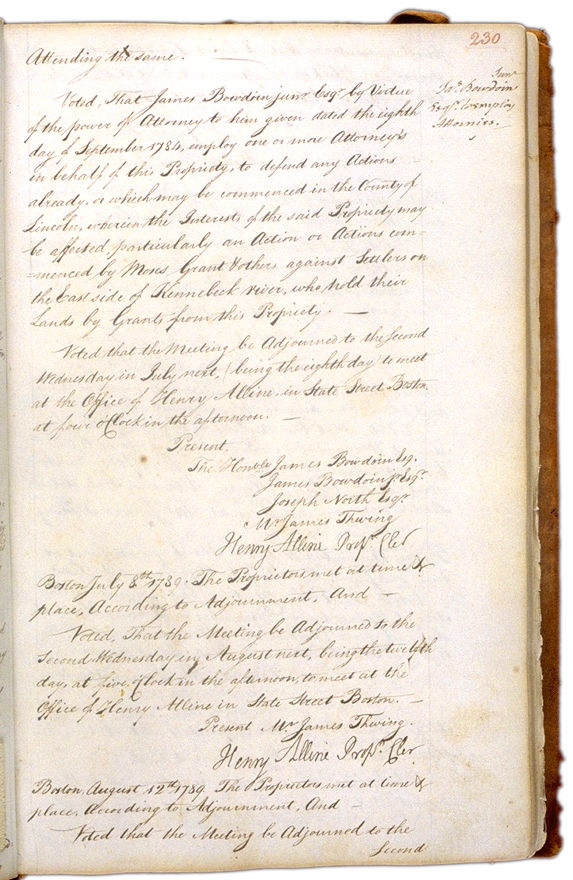 230
Attending the same.
Junr
Js. Bowdoin
Esqr. to employ
Attornies.
Voted, That James Bowdoin junr Esqr by Virtue
of the power of Attorney to him given dated the eighth
day of September 1784, employ one or more Attorney's
in behalf of this Propriety, to defend any Actions
already, or which may be commenced in the County of
Lincoln, wherein the Interests of the said Propriety may
be affected, particularly an Action or Actions com-
=menced by Moses Grant & others against Setlers on
the East side of Kennebeck river, who hold their
Lands by Grants from this Propriety. —
Voted that the Meeting be Adjourned to the Second
Wednesday in July next, (being the eighth day) to meet
at the Office of Henry Alline in State Street Boston
at four oClock in the afternoon. —
Present.
The Honble James Bowdoin Esq.
James Bowdoin Jr Esqr.
Joseph North Esqr
Mr James Thwing
Henry Alline Propr. Cler
Boston July 8th 1789. The Proprietors met at time &
place, According to Adjournment, And —
Voted, That the Meeting be Adjourned to the
Second Wednesday in August next, being the twelfth
day, at five oClock in the afternoon, to meet at the
Office of Henry Alline in State Street Boston. —
Present Mr James Thwing.
Henry Alline Propr. Cler
Boston, August 12th 1789. The Proprietors met at time &
place, According to Adjournment, And —
Voted that the Meeting be Adjourned to the
Second